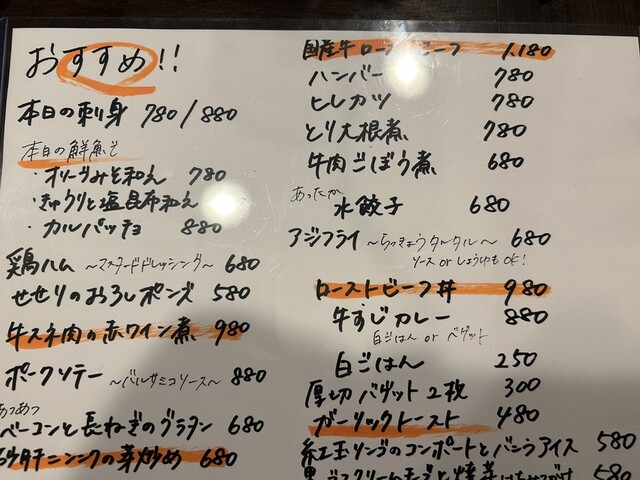 おすすめ!!
本日の刺身 780/880
本日の鮮魚を
・オリーブみそ和え 780
・きゅうりと塩昆布和え
・カルパッチョ 880
鶏ハム ~マスタードドレッシング~ 680
せせりのおろしポンズ 580
牛スネ肉の赤ワイン煮 980
ポークソテー ~バルサミコソース~ 880
あつあつ
ベーコンと長ねぎのグラタン 680
砂肝ニンニクの芽炒め 680
国産牛ローストビーフ 1,180
ハンバー 780
ヒレカツ 780
とり大根煮 780
牛肉ごぼう煮 680
あったか
水餃子 680
アジフライ ~らっきょうタルタル~ 680
ソース or しょうゆもOK!
ローストビーフ丼 980
牛すじカレー 880
白ごはん or バゲット
白ごはん 250
厚切バゲット2枚 300
ガーリックトースト 480
紅玉リンゴのコンポートとバニラアイス 580
580